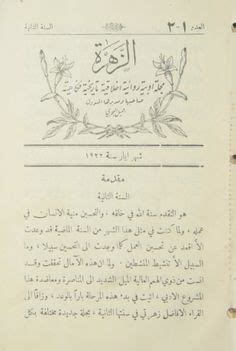 العدد ١-٢
السنة الثانية
الزهرة
مجلة أدبية روائية أخلاقية تاريخية فكاهية
صاحبها ومحررها المسؤول
جميل البحري
شهر ايار سنة ١٩٢٢
مقدمة
السنة الثانية
هو التقدم سنة الله في خلقه . والتحسين منية الانسان في
عمله ، ولما كنت في مثل هذا الشهر من السنة الماضية قد وعدت
الا اقعد عن تحسين العمل كلما وجدت الى التحسين سبيلا ، وما
السبيل الا تنشيط المنشطين . ولما ان هذه الآمال تحققت وقد
آنست من ذوي الهمم العالية الميل الشديد الى المناصرة ومعاضدة هذا
المشروع الادبي ، اتيت في بدء هذه المرحلة باراً بالوعد ، وزافاً الى
القراء الافاضل زهرتي في سنتها الثانية ، بحلة جديدة مختلفة بكل